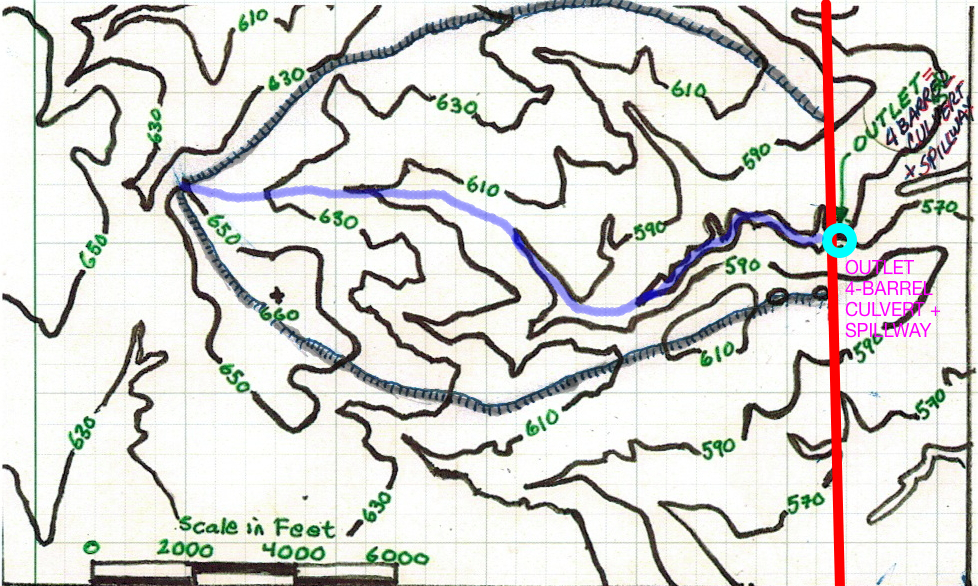 610
610
630
630
610
630
590
OUTLET =
4 BARREL
CULVERT
x SPILLWAY
610
630
570
650
650
590
590
OUTLET
4-BARREL
CULVERT +
SPILLWAY
660
610
590
650
570
630
610
590
570
630
Scale in Feet
0 2000 4000 6000